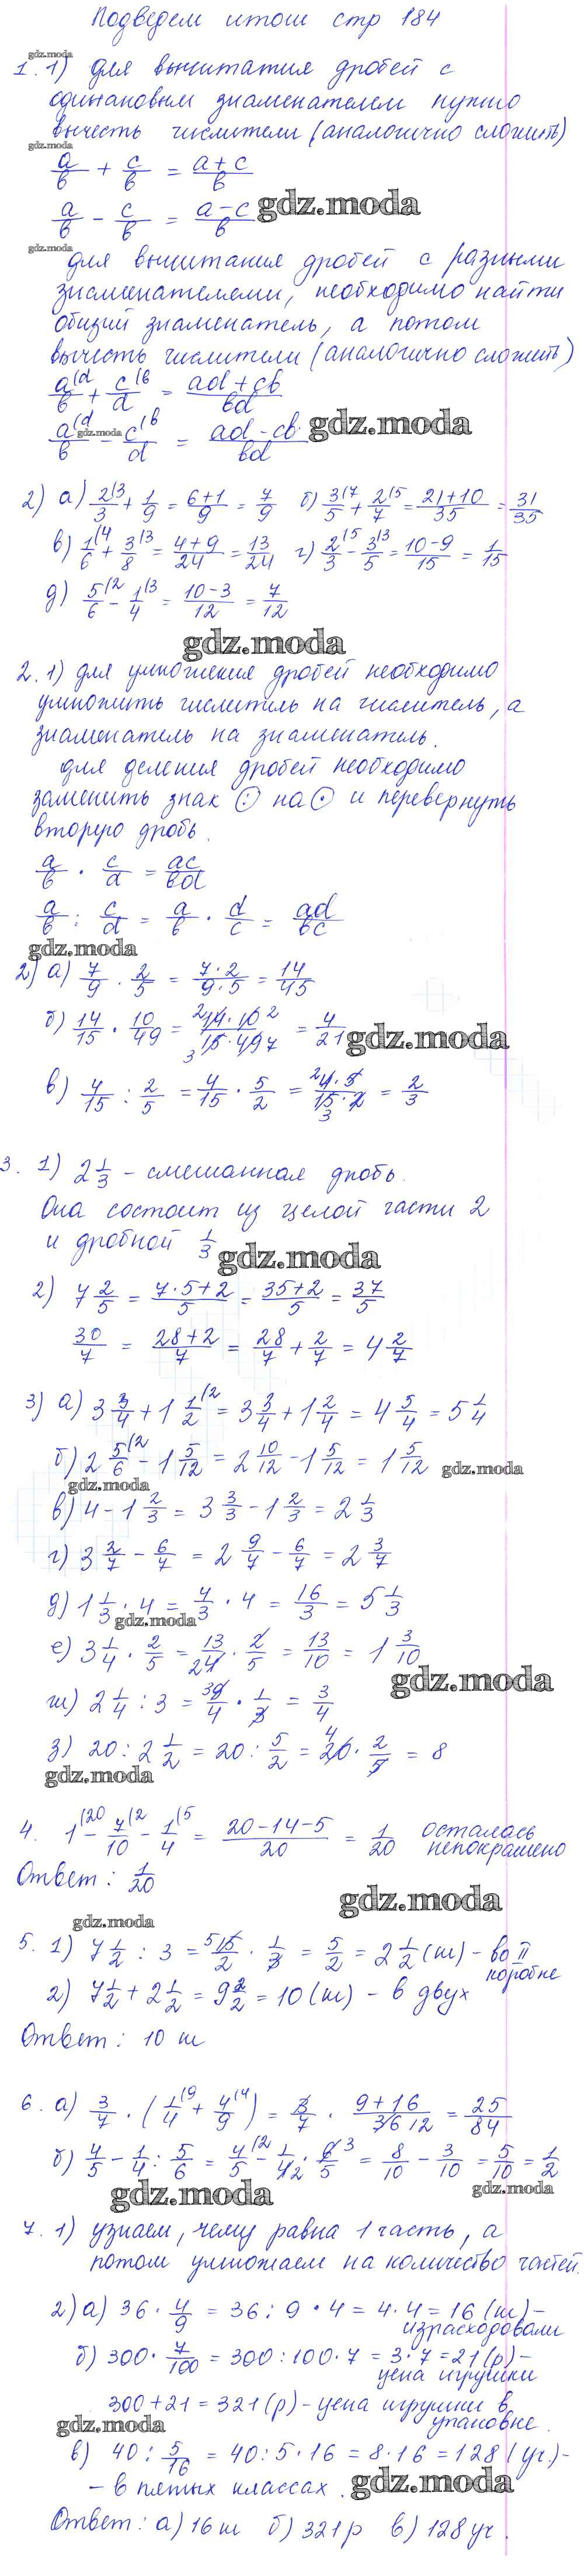 Подведем итоги стр 184
gdz.moda
1. 1) для вычитания дробей с
одинаковым знаменателем нужно
вычесть числители (аналогично сложить)
gdz.moda
a/b + c/b = a+c/b
a/b - c/b = a-c/b gdz.moda
gdz.moda
для вычитания дробей с разными
знаменателеми, необходимо найти
общий знаменатель, а потом
вычесть числители (аналогично сложить)
a(d/b + c(b/d = ad+cb/bd
a(d/b - c(b/d = ad-cb/bd gdz.moda
gdz.moda
2) а) 2(3/3 + 1/9 = 6+1/9 = 7/9 б) 3(7/5 + 2(5/7 = 21+10/35 = 31/35
в) 1(4/6 + 3(3/8 = 4+9/24 = 13/24 г) 2(5/3 - 3(3/5 = 10-9/15 = 1/15
д) 5(2/6 - 1(3/4 = 10-3/12 = 7/12
gdz.moda
2. 1) для умножения дробей необходимо
умножить числитель на числитель, а
знаменатель на знаменатель.
для деления дробей необходимо
заменить знак (:) на (·) и перевернуть
вторую дробь.
a/b · c/d = ac/bd
a/b : c/d = a/b · d/c = ad/bc
gdz.moda
2) а) 7/9 · 2/5 = 7·2/9·5 = 14/45
б) 14/15 · 10/49 = 2 14·10 2/3 15·49 7 = 4/21 gdz.moda
в) 4/15 : 2/5 = 4/15 · 5/2 = 2 4·5/15·2 3 = 2/3
3. 1) 2 1/3 - смешанная дробь.
Она состоит из целой части 2
и дробной 1/3 gdz.moda
2) 7 2/5 = 7·5+2/5 = 35+2/5 = 37/5
30/7 = 28+2/7 = 28/7 + 2/7 = 4 2/7
3) а) 3 3/4 + 1 1(2/2 = 3 3/4 + 1 2/4 = 4 5/4 = 5 1/4
б) 2 5(2/6 - 1 5/12 = 2 10/12 - 1 5/12 = 1 5/12 gdz.moda
gdz.moda
в) 4 - 1 2/3 = 3 3/3 - 1 2/3 = 2 1/3
г) 3 2/7 - 6/7 = 2 9/7 - 6/7 = 2 3/7
д) 1 1/3 · 4 = 4/3 · 4 = 16/3 = 5 1/3
gdz.moda
е) 3 1/4 · 2/5 = 13/2 4 · 2/5 = 13/10 = 1 3/10
gdz.moda
ж) 2 1/4 : 3 = 3 9/4 · 1/3 = 3/4
з) 20 : 2 1/2 = 20 : 5/2 = 4 20 · 2/5 = 8
gdz.moda
4. 1(20 - 7(2/10 - 1(5/4 = 20-14-5/20 = 1/20 осталась
непокрашено
Ответ: 1/20
gdz.moda
gdz.moda
5. 1) 7 1/2 : 3 = 5 15/2 · 1/3 = 5/2 = 2 1/2 (м) - во II
коробке
2) 7 1/2 + 2 1/2 = 9 2/2 = 10 (м) - в двух
Ответ: 10 м
6. а) 3/7 · (1(9/4 + 4(4/9) = 3/7 · 9+16/36 12 = 25/84
б) 4/5 - 1/4 : 5/6 = 4(2/5 - 1/4 2 · 6 3/5 = 8/10 - 3/10 = 5/10 = 1/2
gdz.moda gdz.moda
7. 1) узнаем, чему равна 1 часть, а
потом умножаем на количество частей.
2) а) 36 · 4/9 = 36 : 9 · 4 = 4·4 = 16 (м) -
израсходовали
б) 300 · 7/100 = 300 : 100 · 7 = 3·7 = 21 (р) -
цена игрушки
300 + 21 = 321 (р) - цена игрушки в
упаковке.
gdz.moda
в) 40 : 5/16 = 40 : 5 · 16 = 8·16 = 128 (уч.) -
- в пятых классах. gdz.moda
Ответ: а) 16 м б) 321 р в) 128 уч.